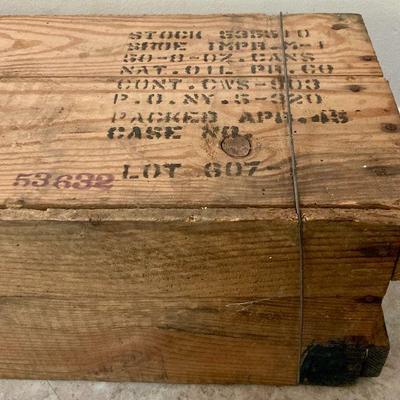 STOCK 535510
SHOE IMPR. M-1
50-8-OZ. CANS
NAT. OIL PR. CO
CONT. CWS-903
P.O. NY. S-320
PACKED APR. 45
CASE NO.
53632 LOT 607-